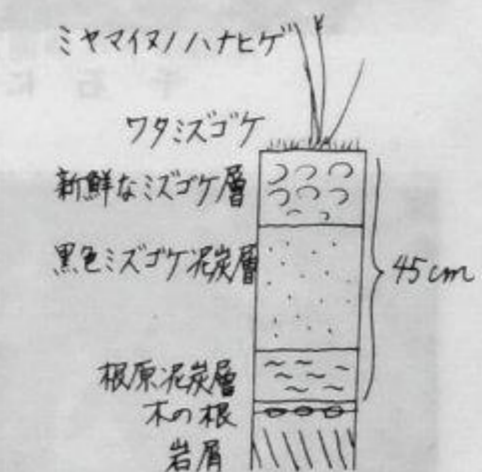 ミヤマイヌノハナヒゲ
ワタミズゴケ
新鮮なミズゴケ層
黒色ミズゴケ泥炭層
45cm
根原泥炭層
木の根
岩屑